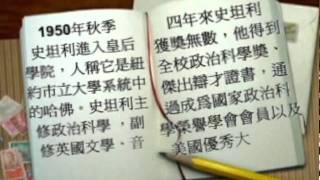 1950年秋季
史坦利進入皇后
學院，人稱它是紐
約市立大學系統中
的哈佛。史坦利主
修政治科學，副
修英國文學、音
四年來史坦利
獲獎無數，他得到
全校政治科學獎、
傑出辯才證書，通
過成為國家政治科
學榮譽學會會員以及
美國優秀大